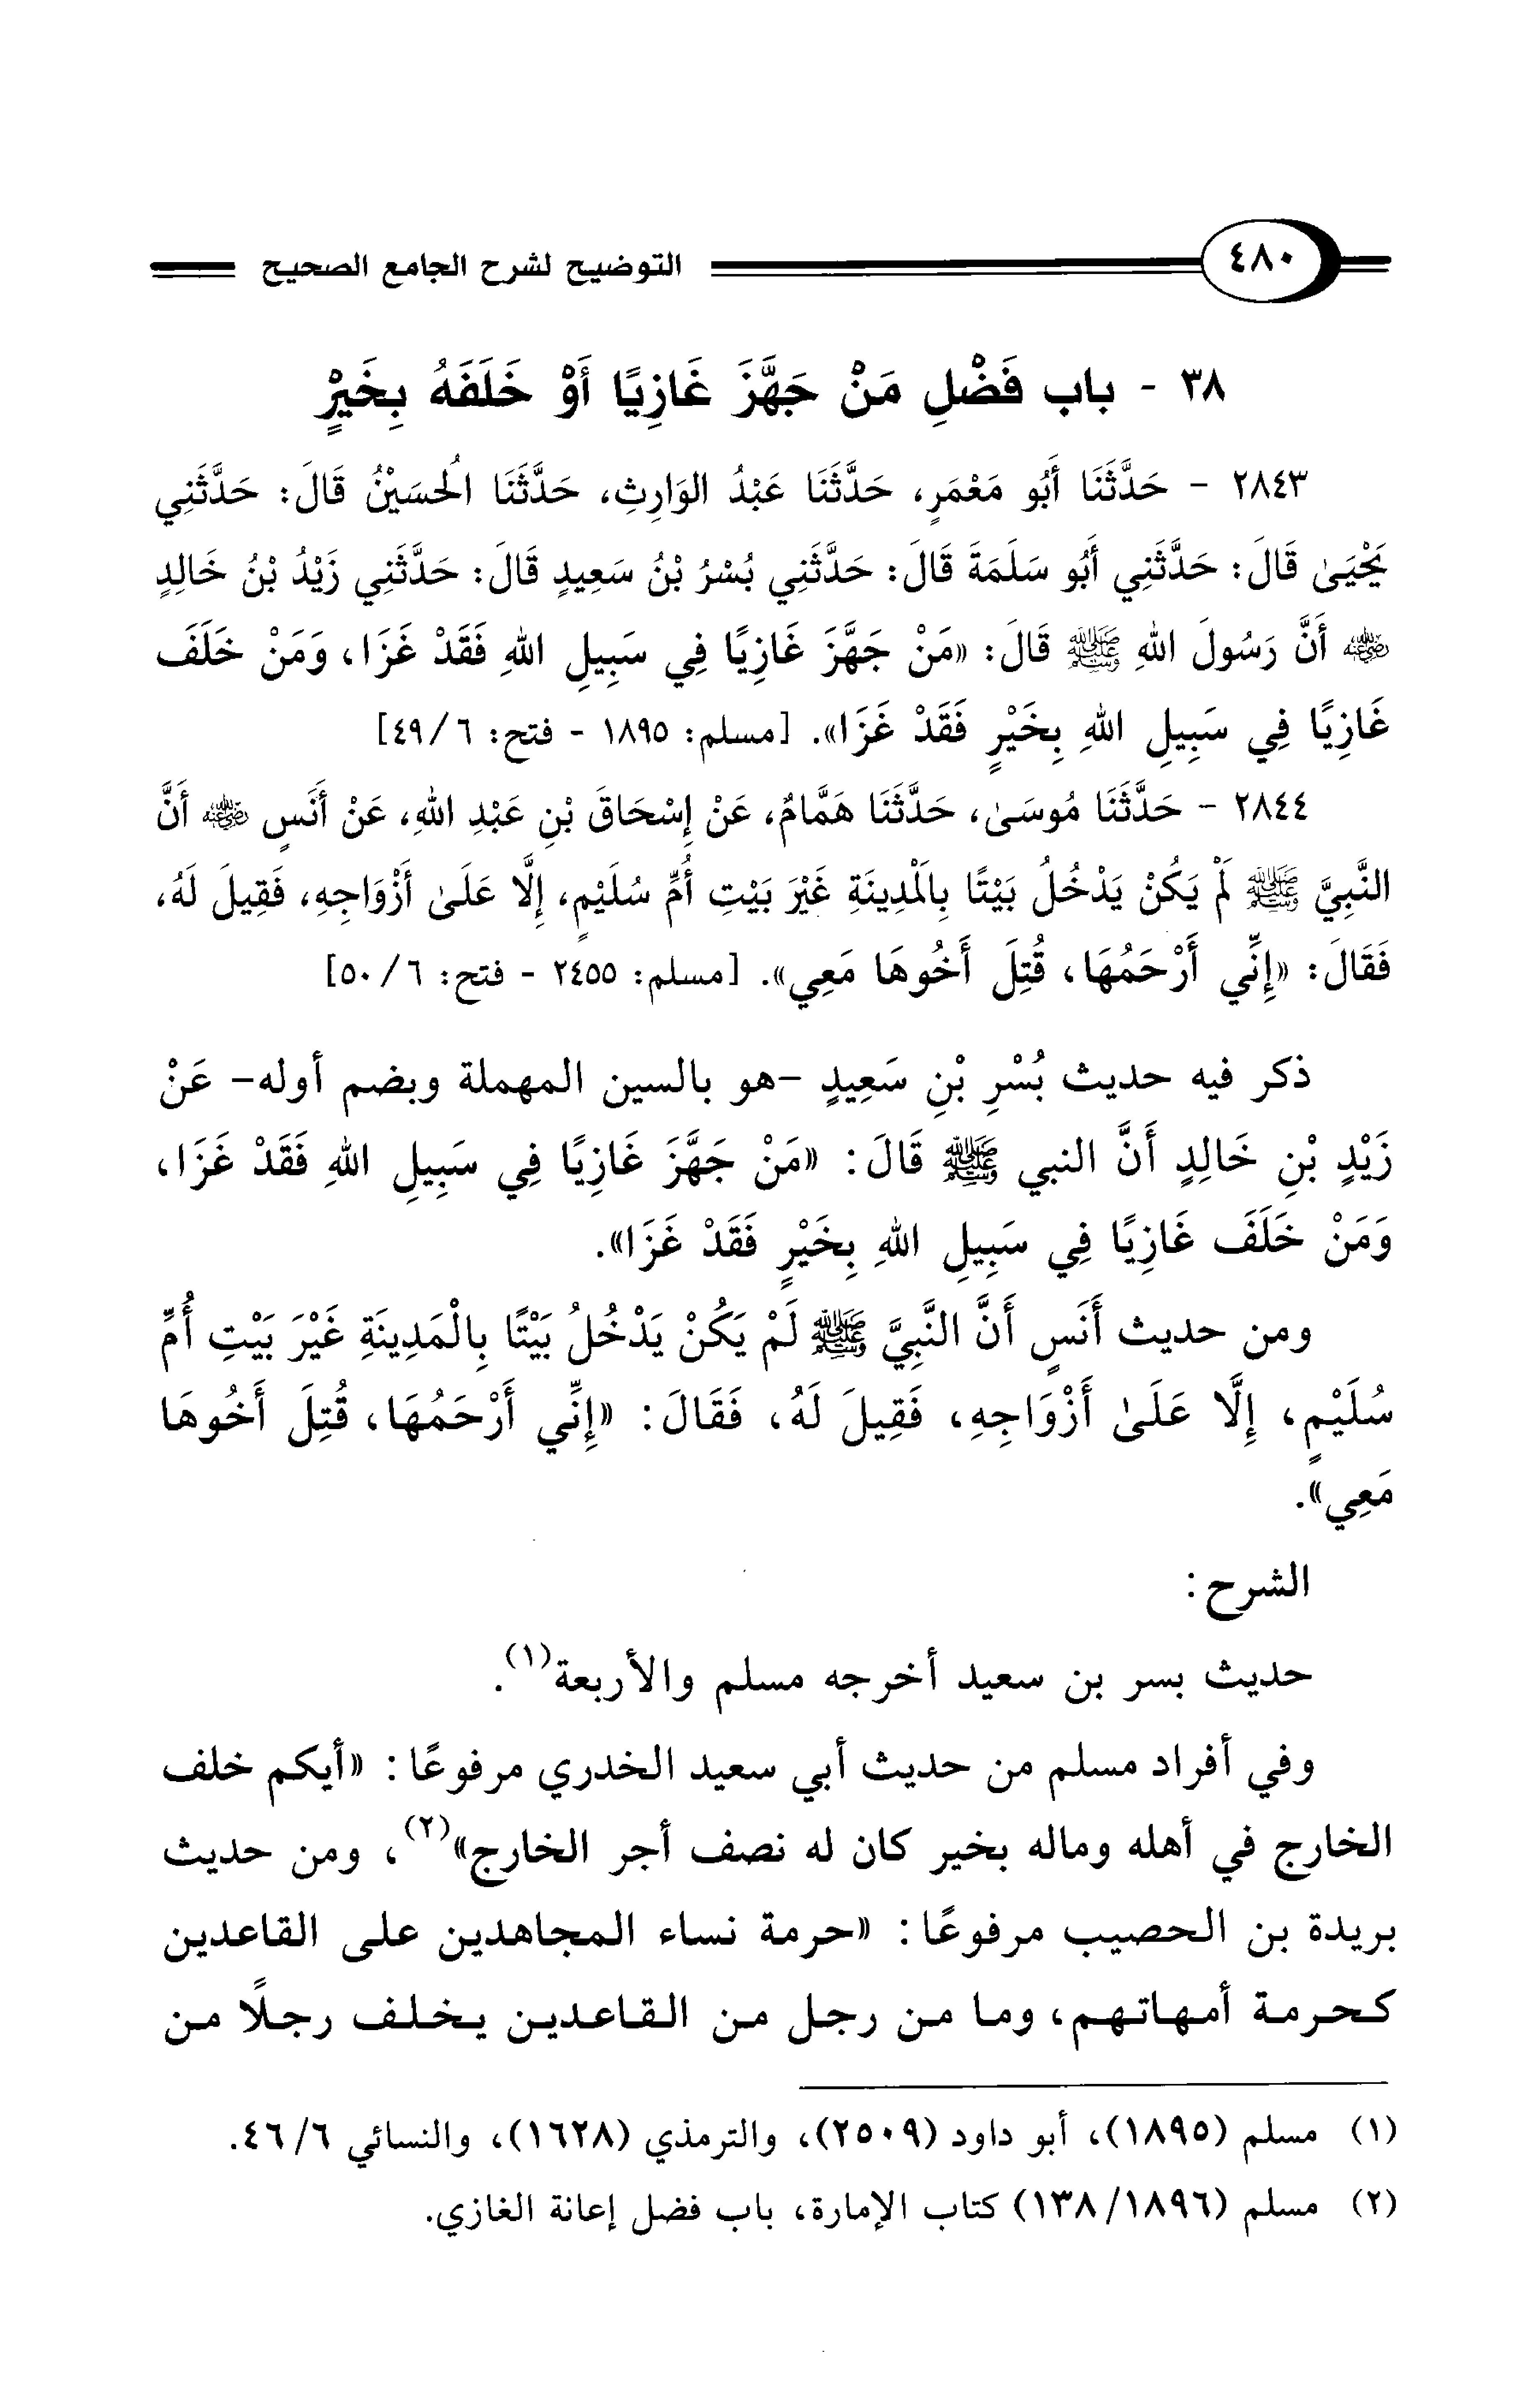 ٤٨٠ التوضيح لشرح الجامع الصحيح
٣٨ - باب فَضْلِ مَنْ جَهَّزَ غَازِيًا أَوْ خَلَفَهُ بِخَيْرٍ
٢٨٤٣ - حَدَّثَنَا أَبُو مَعْمَرٍ، حَدَّثَنَا عَبْدُ الوَارِثِ، حَدَّثَنَا الُحسَيْنُ قَالَ: حَدَّثَنِي
يَحْيَىٰ قَالَ: حَدَّثَنِي أَبُو سَلَمَةَ قَالَ: حَدَّثَنِي بُسْرُ بْنُ سَعِيدٍ قَالَ: حَدَّثَنِي زَيْدُ بْنُ خَالِدٍ
رضي الله عنه أَنَّ رَسُولَ اللهِ ﷺ قَالَ: «مَنْ جَهَّزَ غَازِيًا فِي سَبِيلِ اللهِ فَقَدْ غَزَا، وَمَنْ خَلَفَ
غَازِيًا فِي سَبِيلِ اللهِ بِخَيْرٍ فَقَدْ غَزَا». [مسلم: ١٨٩٥ - فتح: ٤٩/٦]
٢٨٤٤ - حَدَّثَنَا مُوسَىٰ، حَدَّثَنَا هَمَّامٌ، عَنْ إِسْحَاقَ بْنِ عَبْدِ اللهِ، عَنْ أَنَسٍ رضي الله عنه أَنَّ
النَّبِيَّ ﷺ لَمْ يَكُنْ يَدْخُلُ بَيْتًا بِالَمْدِينَةِ غَيْرَ بَيْتِ أُمِّ سُلَيْمٍ، إِلَّا عَلَىٰ أَزْوَاجِهِ، فَقِيلَ لَهُ،
فَقَالَ: «إِنِّي أَرْحَمُهَا، قُتِلَ أَخُوهَا مَعِي». [مسلم: ٢٤٥٥ - فتح: ٥٠/٦]
ذكر فيه حديث بُسْرِ بْنِ سَعِيدٍ -هو بالسين المهملة وبضم أوله- عَنْ
زَيْدِ بْنِ خَالِدٍ أَنَّ النبي ﷺ قَالَ: «مَنْ جَهَّزَ غَازِيًا فِي سَبِيلِ اللهِ فَقَدْ غَزَا،
وَمَنْ خَلَفَ غَازِيًا فِي سَبِيلِ اللهِ بِخَيْرٍ فَقَدْ غَزَا».
ومن حديث أَنَسٍ أَنَّ النَّبِيَّ ﷺ لَمْ يَكُنْ يَدْخُلُ بَيْتًا بِالْمَدِينَةِ غَيْرَ بَيْتِ أُمِّ
سُلَيْمٍ، إِلَّا عَلَىٰ أَزْوَاجِهِ، فَقِيلَ لَهُ، فَقَالَ: «إِنِّي أَرْحَمُهَا، قُتِلَ أَخُوهَا
مَعِي».
الشرح:
حديث بسر بن سعيد أخرجه مسلم والأربعة(١).
وفي أفراد مسلم من حديث أبي سعيد الخدري مرفوعًا: «أيكم خلف
الخارج في أهله وماله بخير كان له نصف أجر الخارج»(٢)، ومن حديث
بريدة بن الحصيب مرفوعًا: «حرمة نساء المجاهدين على القاعدين
كحرمة أمهاتهم، وما من رجل من القاعدين يخلف رجلًا من
(١) مسلم (١٨٩٥)، أبو داود (٢٥٠٩)، والترمذي (١٦٢٨)، والنسائي ٤٦/٦.
(٢) مسلم (١٣٨/١٨٩٦) كتاب الإمارة، باب فضل إعانة الغازي.